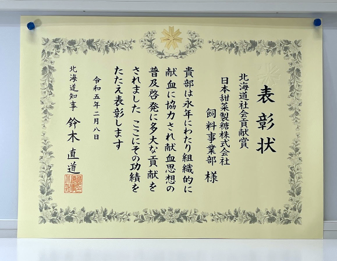 表彰状
北海道社会貢献賞
日本甜菜製糖株式会社
飼料事業部 様
貴部は永年にわたり組織的に
献血に協力され献血思想の
普及啓発に多大な貢献を
されました ここにその功績を
たたえ表彰します
令和五年二月八日
北海道知事 鈴木直道